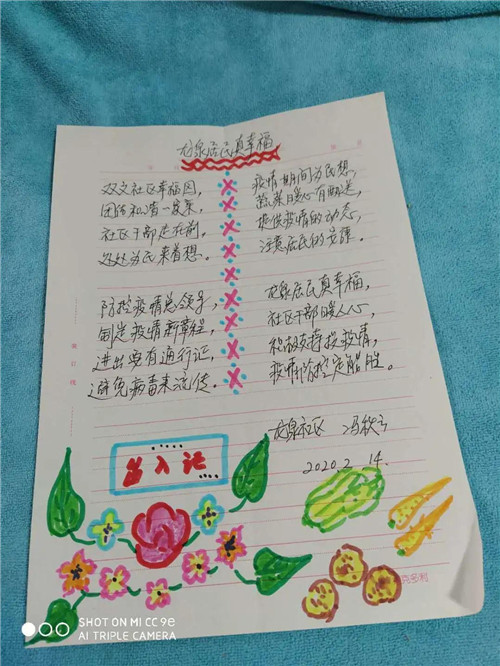 龙泉居民真幸福
双文社区幸福园,
团结和谐一家亲,
社区干部走在前,
处处为民来着想。
防控疫情总领导,
制定疫情新章程,
进出要有通行证,
避免病毒来流传。
疫情期间为民想,
蔬菜暖心有配送,
提供疫情的动态,
注意居民的安康。
龙泉居民真幸福,
社区干部暖人心,
积极支持抗疫情,
疫情防控定能胜。
龙泉社区 冯秋云
2020.2.14.
出入证
装订线
SHOT ON MI CC 9e
AI TRIPLE CAMERA